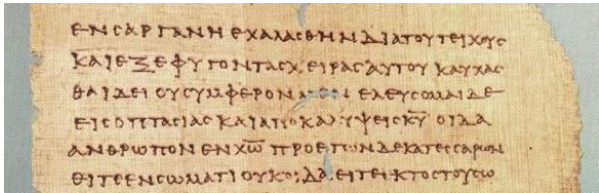 ΕΝ ΣΑΡΓΑΝΗ ΕΧΑΛΑΣΘΗΝ ΔΙΑ ΤΟΥ ΤΕΙΧΟΥΣ
ΚΑΙ ΕΞΕΦΥΓΟΝ ΤΑΣ ΧΕΙΡΑΣ ΑΥΤΟΥ ΚΑΥΧΑΣ
ΘΑΙ ΔΕΙ ΟΥ ΣΥΜΦΕΡΟΝ ΕΛΕΥΣΟΜΑΙ ΔΕ
ΕΙΣ ΟΠΤΑΣΙΑΣ ΚΑΙ ΑΠΟΚΑΛΥΨΕΙΣ Κ̅Υ̅ ΟΙΔΑ
ΑΝΘΡΩΠΟΝ ΕΝ Χ̅Ω̅ ΠΡΟ ΕΤΩΝ ΔΕΚΑΤΕΣΣΑΡΩΝ
ΕΙΤΕ ΕΝ ΣΩΜΑΤΙ ΟΥΚ ΟΙΔΑ ΕΙΤΕ ΕΚΤΟΣ ΤΟΥ ΣΩ